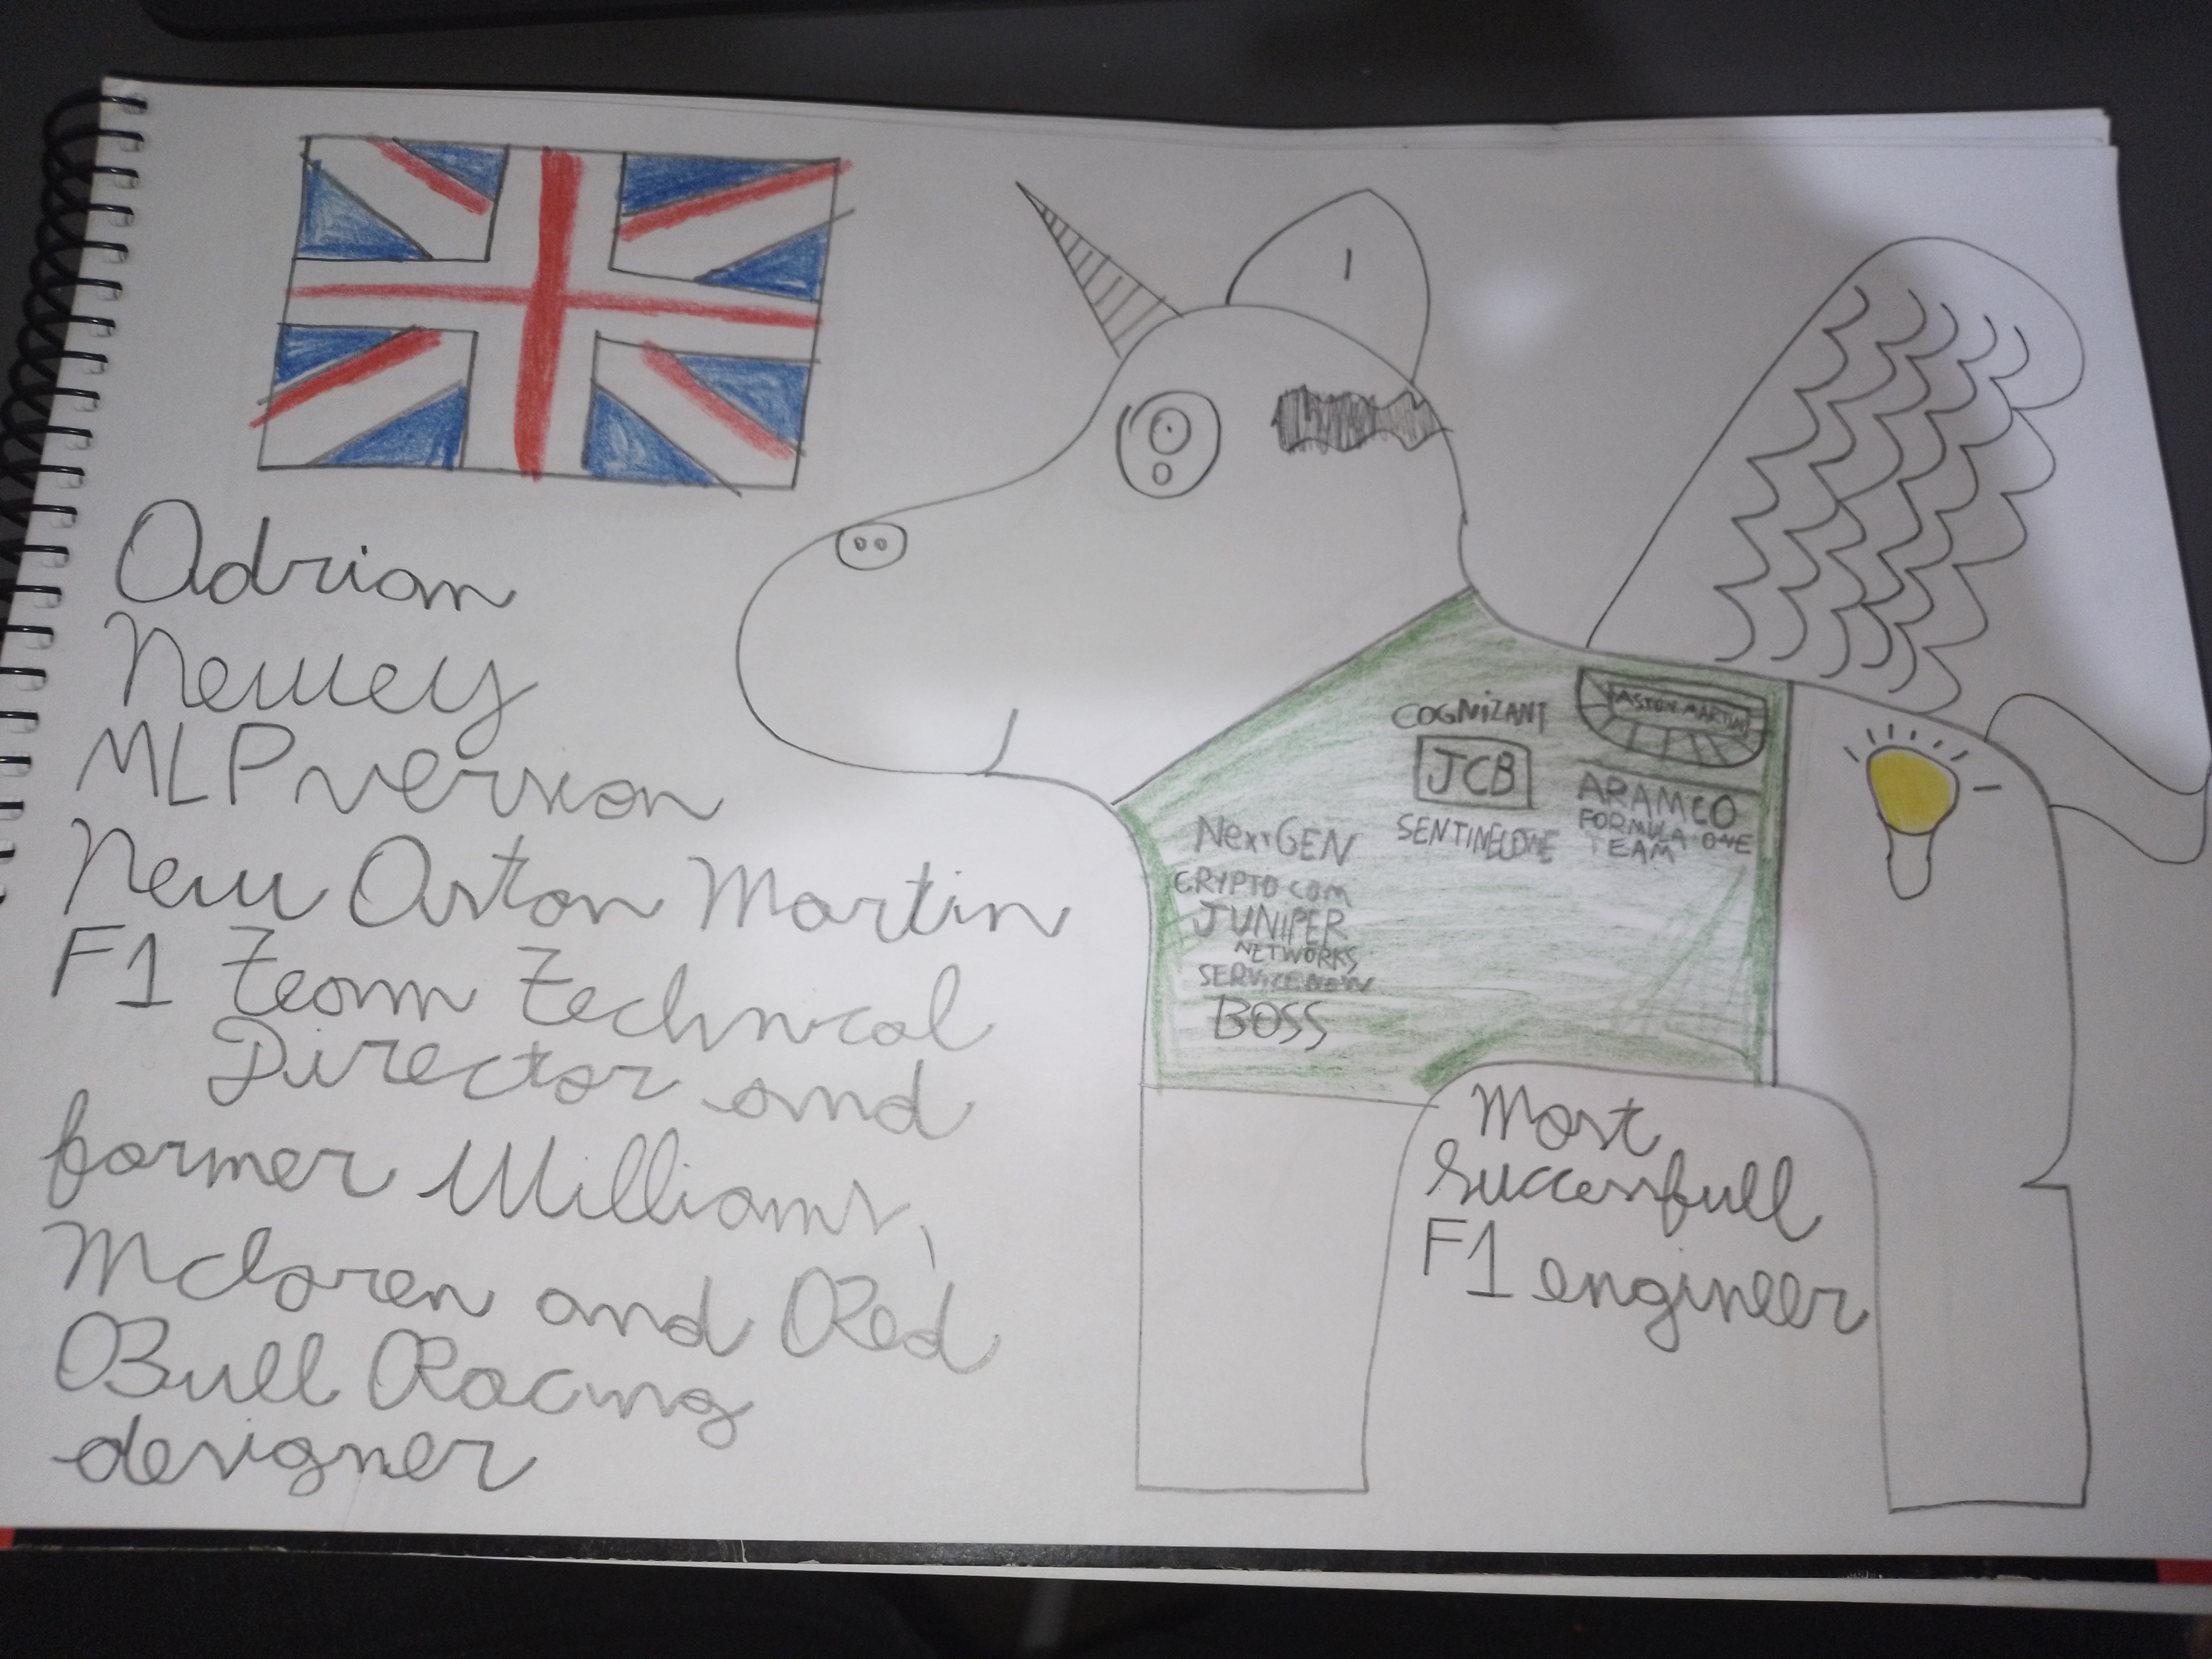 Adrian
Newey
MLP version
New Aston Martin
F1 Team Technical
Director and
former Williams,
Mclaren and Red
Bull Racing
designer
COGNIZANT
JCB
SENTINELONE
ASTON MARTIN
ARAMCO
FORMULA ONE
TEAM
NexTGEN
CRYPTO COM
JUNIPER
NETWORKS
SERVICENOW
BOSS
Most
Successfull
F1 engineer